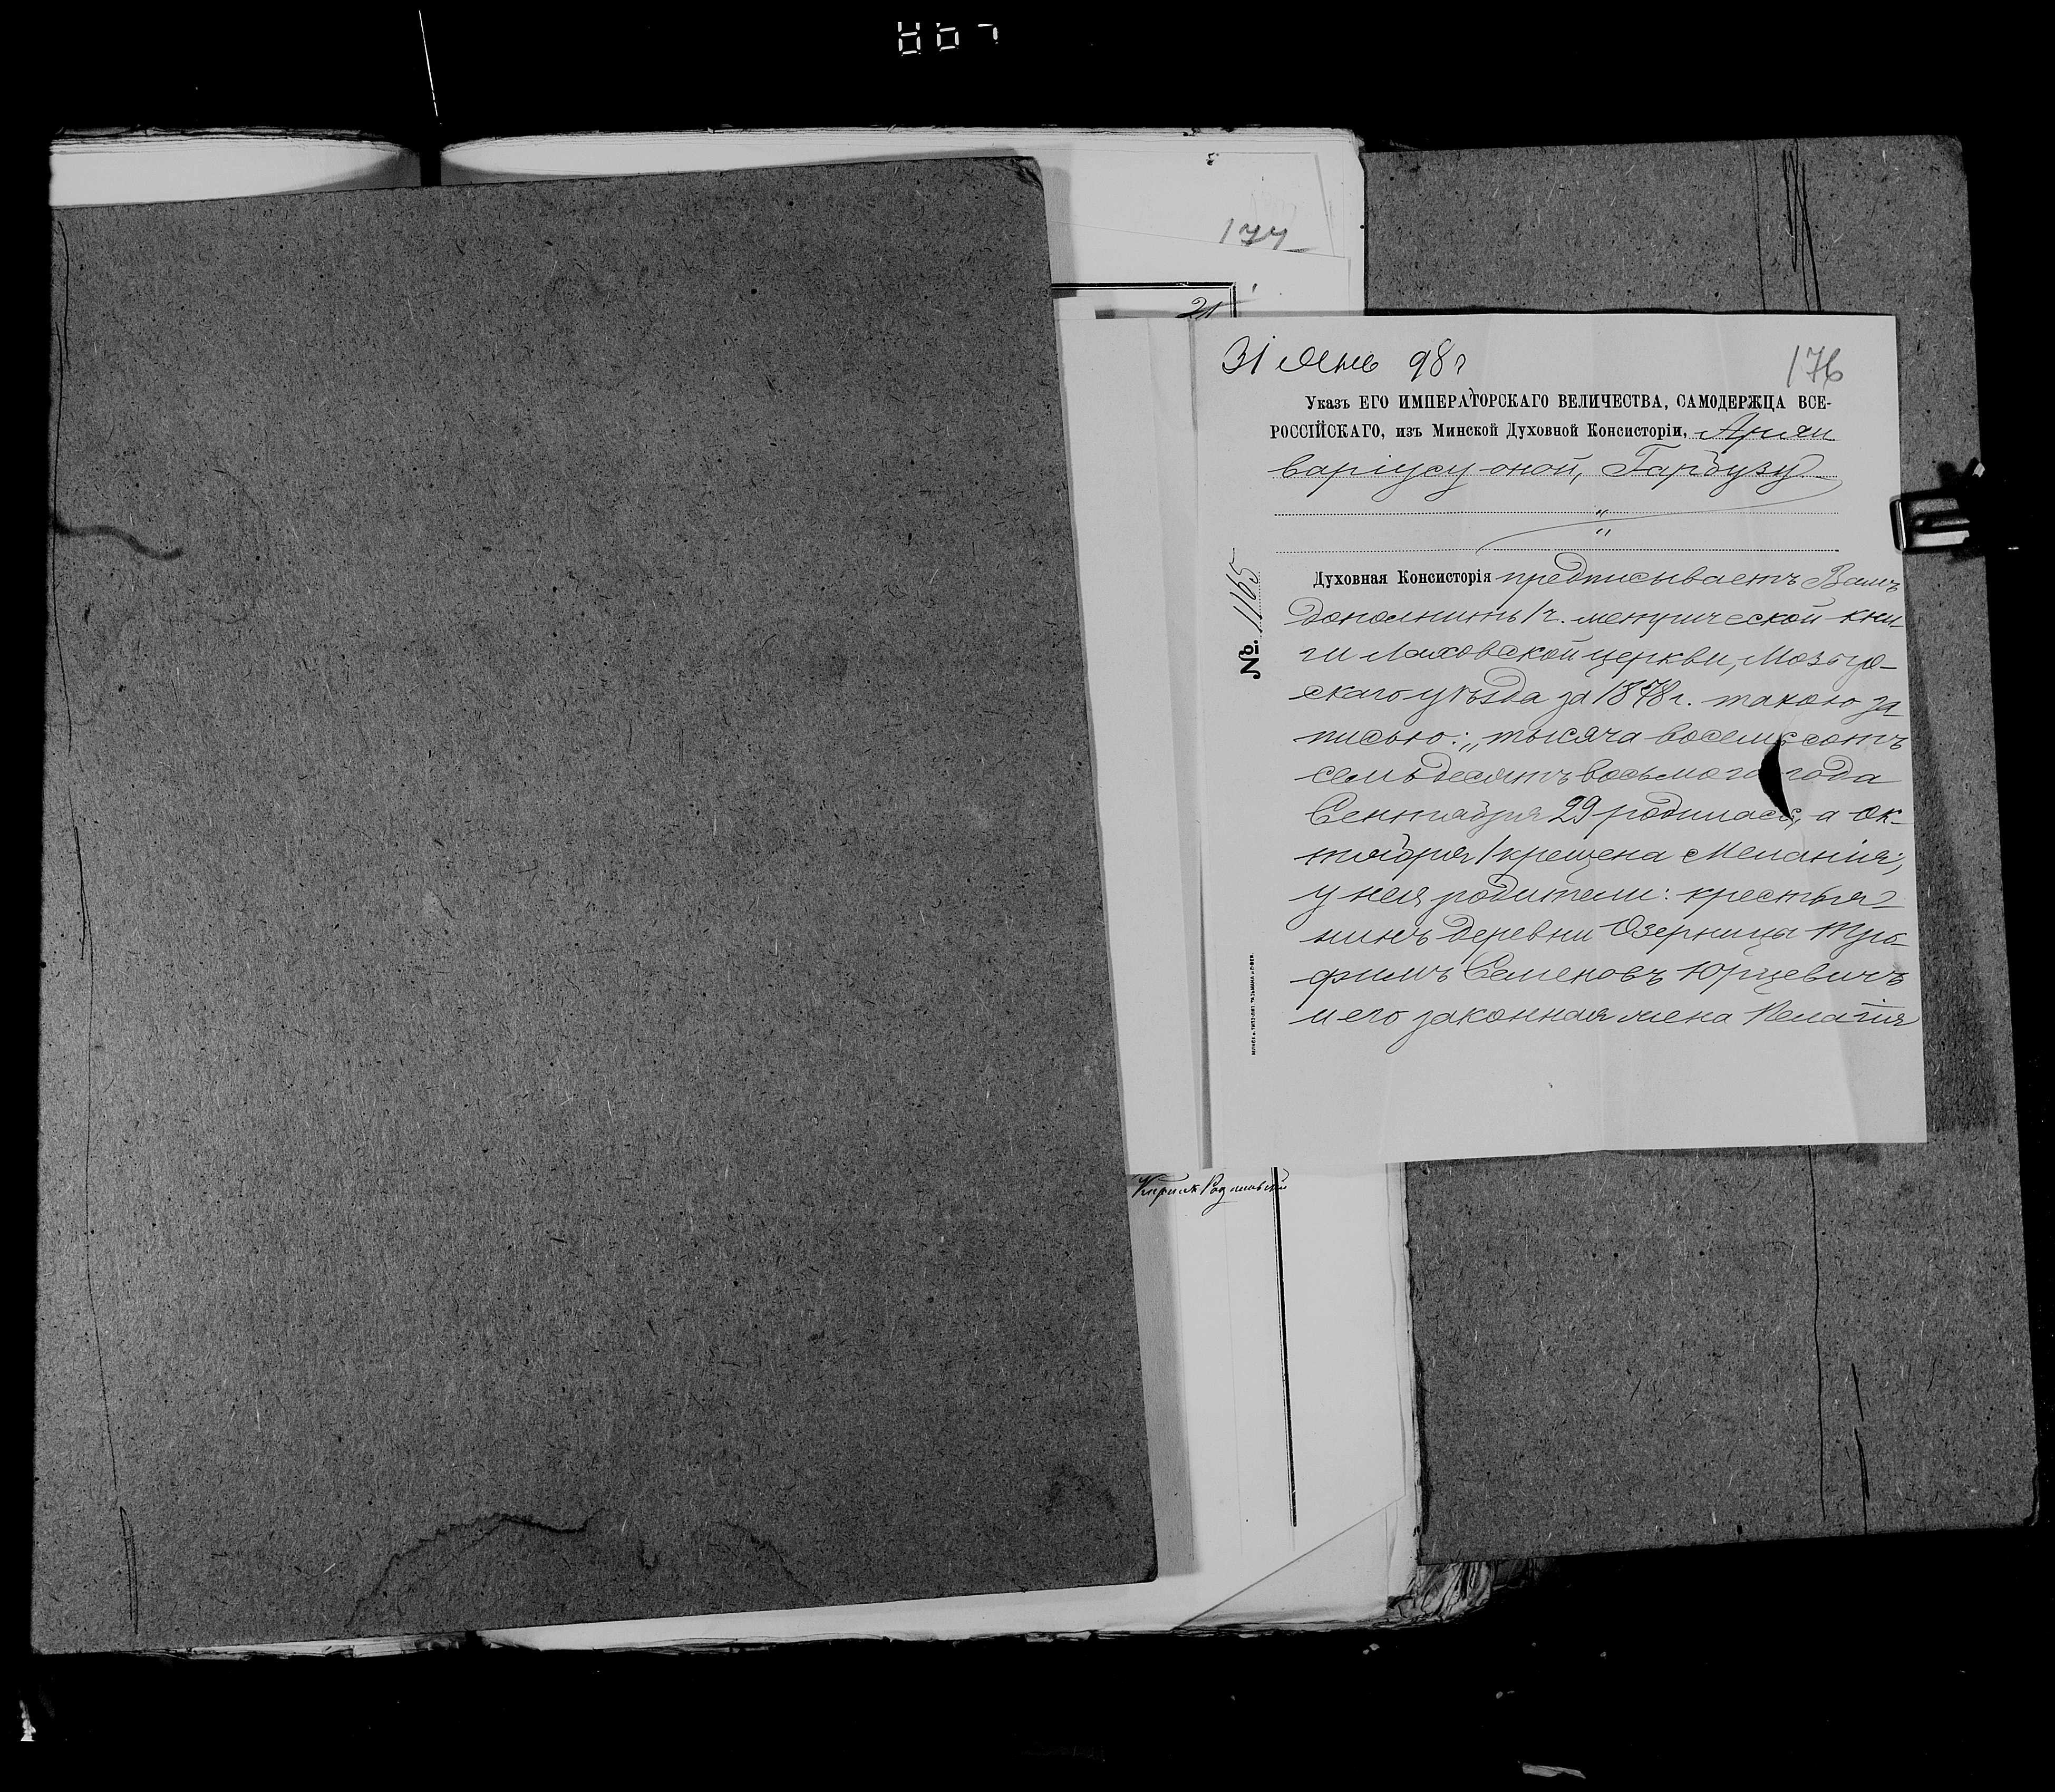 177
21
31 Янв 98 г
176
Указъ ЕГО ИМПЕРАТОРСКАГО ВЕЛИЧЕСТВА, САМОДЕРЖЦА ВСЕ-
РОССІЙСКАГО, изъ Минской Духовной Консисторіи, Архи
варіусу оной, Гарбузу
№ 1165
Духовная Консисторія предписываетъ Вамъ
дополнить 1 ч. метрической кни-
ги Лаховской церкви, Мозыр-
скаго уѣзда за 1878 г. такою за
писью: „тысяча восемьсотъ
семьдесятъ восьмого года
Сентября 29 родилась, а Ок-
тября 1 крещена Меланія;
у нея родители: крестья-
нинъ деревни Озерница Тро-
фимъ Семеновъ Юрцевичъ
и его законная жена Пелагія
Кирилъ